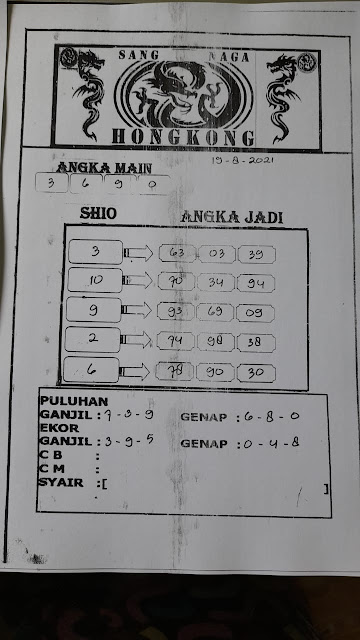 SANG NAGA
HONGKONG
19-8-2021
ANGKA MAIN
3 6 9 0
SHIO ANGKA JADI
3 63 03 39
10 70 34 94
9 93 69 09
2 74 98 38
6 78 90 30
PULUHAN
GANJIL : 7-3-9 GENAP : 6-8-0
EKOR
GANJIL : 3-9-5 GENAP : 0-4-8
C B :
C M :
SYAIR :[ ]